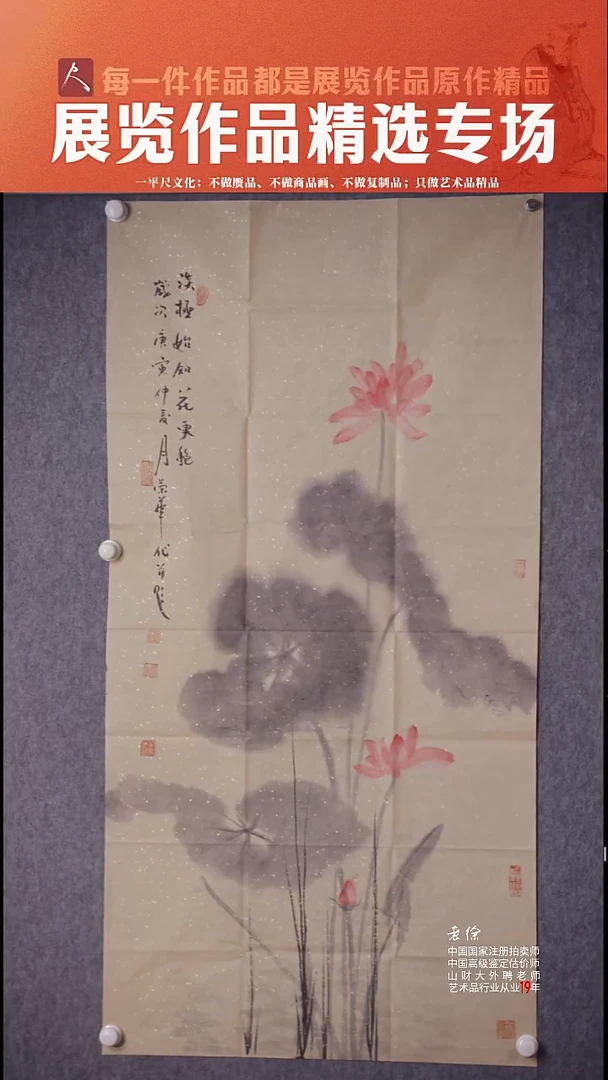 每一件作品都是展览作品原作精品
展览作品精选专场
一平尺文化：不做赝品、不做商品画、不做复制品；只做艺术品精品
淡极始知花更艳
岁次庚寅仲夏月荣华作并题
老徐
中国国家注册拍卖师
中国高级鉴定估价师
山财大外聘老师
艺术品行业从业19年